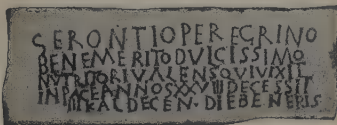 SERONTIO PEREGRINO
BENEMERITO DVLCISSIMO
NVTRITORI VALENS QVI VIXIT
IN PACE ANNOS XXV DECESSIT
KAL DECEN · DIE BENERIS